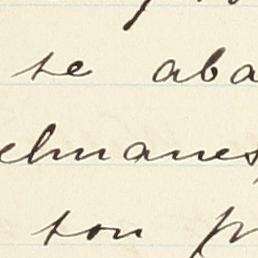 se aba
elmanes,
son p